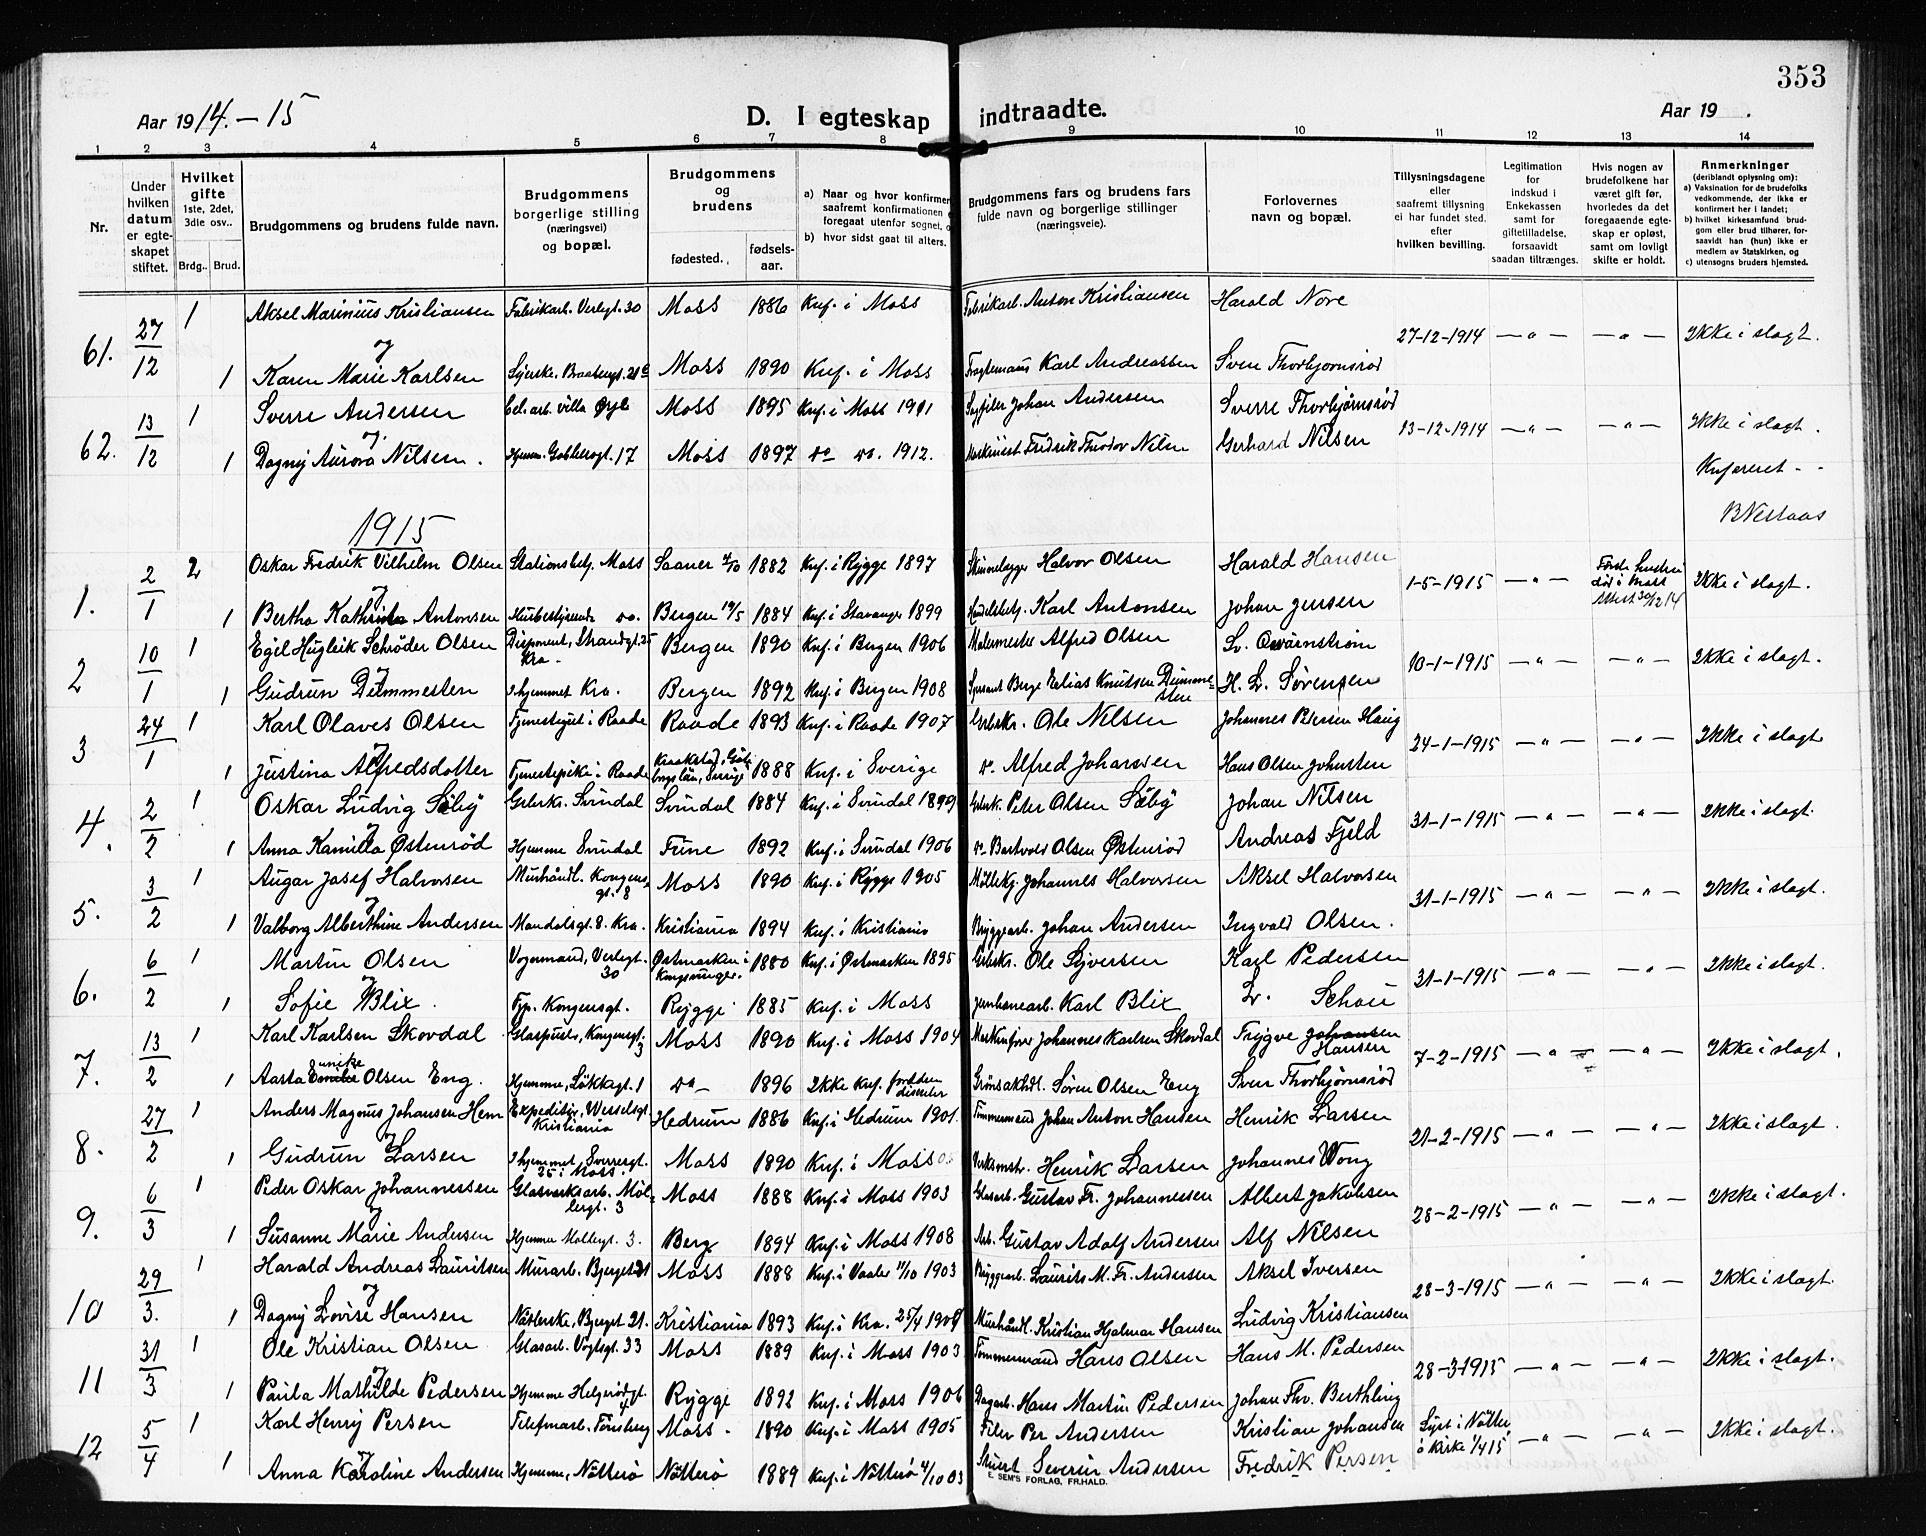 353
Aar 1914.-15 D. I egteskap indtraadte. Aar 19 .
1 2 3 4 5 6 7 8 9 10 11 12 13 14
Nr.
Under hvilken datum er egteskapet stiftet.
Hvilket gifte 1ste, 2det, 3die osv..
Brdg.. Brud.
Brudgommens og brudens fulde navn.
Brudgommens borgerlige stilling (næringsvei) og bopæl.
Brudgommens og brudens
fødested. fødsels-aar.
a) Naar og hvor konfirmer saafremt konfirmationen foregaat utenfor sognet, o
b) hvor sidst gaat til alters.
Brudgommens fars og brudens fars fulde navn og borgerlige stillinger (næringsveie).
Forlovernes navn og bopæl.
Tillysningsdagene eller saafremt tillysning ei har fundet sted. efter hvilken bevilling.
Legitimation for indskud i Enkekassen samt for giftetilladelse, forsaavidt saadan tiltrænges.
Hvis nogen av brudefolkene har været gift før, hvorledes da det foregaaende egteskap er opløst, samt om lovligt skifte er holdt.
Anmerkninger (deriblandt oplysning om):
a) Vaksination for de brudefolks vedkommende, der ikke er konfirmert her i landet;
b) hvilket kirkesamfund brudgom eller brud tilhører, forsaavidt han (hun) ikke er medlem av Statskirken, og
c) utensogns bruders hjemsted.
61. 27/12 1 Aksel Marinius Kristiansen Fabrikarb. Verlegt. 30 Moss 1886 Knf. i Moss Fabrikarb. Anton Kristiansen Harald Nore 27-12-1914 — " — — " — Ikke i slagt.
og
1 Karen Marie Karlsen Syerske. Moss 1890 Knf. i Moss Fragtemand Karl Andreassen Sven Thorbjørnsrød
62. 13/12 1 Sverre Andersen Moss 1895 Knf. i Moss 1911 Sagfiler Johan Andersen Sverre Thorbjørnsrød 13-12-1914 — " — — " — Ikke i slagt.
og
1 Dagny Aurora Nilsen. Hjemm. 17 Moss 1897 do do. 1912. Maskinist Fredrik Theodor Nilsen Gerhard Nilsen
Knfereret - -
1915
1. 2/1 2 Oskar Fredrik Vilhelm Olsen Stationsbetj. Moss Saaner 4/10 1882 Knf. i Rygge 1897 Halvor Olsen Harald Hansen 1-5-1915 — " — Første hustru død i Moss 30/12 14 Ikke i slagt.
og
1 Bertha Kathrine Antonsen Husbestyrerinde do. Bergen 19/5 1884 Knf. i Stavanger 1899 Karl Antonsen Johan Jensen
2 10/1 1 Egil Hugleik Schrøder Olsen Disponent, Strandgt. 25 Kra. Bergen 1890 Knf. i Bergen 1906 Malermester Alfred Olsen 10-1-1915 — " — — " — Ikke i slagt.
og
1 Gudrun Dammesten I hjemmet Kra. Bergen 1892 Knf. i Bergen 1908 Berge Elias Knutsen H. L. Sørensen
3 24/1 1 Karl Olaves Olsen Tjenestegut i Raade Raade 1893 Knf. i Raade 1907 Grbrkr. Ole Nilsen Johannes Petersen Haug 24-1-1915 — " — — " — Ikke i slagt
og
1 Justina Alfredsdotter Tjenestepike i Raade 1888 Knf. i Sverige do Alfred Johansen Hans Olsen Johnsten
4. 2/2 1 Oskar Ludvig Sæby Grbrk. Svindal Svindal 1884 Knf. i Svindal 1899 Grbrk. Peter Olsen Sæby Johan Nilsen 31-1-1915 — " — — " — Ikke i slagt.
og
1 Anna Kamilla Østenrød Hjemme Svindal Tune 1892 Knf. i Svindal 1906 do Bertvold Olsen Østenrød Andreas Fjeld
5. 3/2 1 Augar Josef Halvorsen Murhåndl. Kongensgt. 8 Moss 1890 Knf. i Rygge 1905 Johannes Halvorsen Aksel Halvorsen 31-1-1915 — " — — " — Ikke i slagt.
og
1 Valborg Alberthine Andersen Mandalsgt. 8. Kra. Kristiania 1894 Knf. i Kristiania Bryggearb. Johan Andersen Ingvald Olsen.
6. 6/2 1 Martin Olsen Vognmand, Verlegt. 30 Østmarken i Kongsvinger. 1880 Knf. i Østmarken 1895 Grbrkr. Ole Syversen Karl Pedersen 31-1-1915 — " — — " — Ikke i slagt.
og
1 Sofie Blix. Typ. Kongensgt. Rygge 1885 Knf. i Moss Jernbanearb. Karl Blix Schou
7. 13/2 1 Karl Karlsen Skovdal Glaspuds, Kongensgt. 3 Moss 1890 Knf. i Moss 1904 Johannes Karlsen Skovdal Trygve Johansen Hansen 7-2-1915 — " — — " — Ikke i slagt.
1 Aasta Olsen Eng. Hjemme, Løkkegt. 1 do 1896 Ikke knf. Grønsakhdl. Søren Olsen Eng Sven Thorbjørnsrød
8. 27/2 1 Anders Magnus Johansen Hem Expeditør, Wesselsgt. Kristiania Hedrum 1886 Knf. i Hedrum 1901. Tømmermand Johan Anton Hansen Henrik Larsen 21-2-1915 — " — — " — Ikke i slagt.
og
1 Gudrun Larsen I hjemmet, Sverregt. 25 i Moss. Moss 1890 Knf. i Moss Verksmstr. Henrik Larsen Johannes Wong
9. 6/3 1 Peder Oskar Johannessen Glasverksarb. Møllergt. 3 Moss 1888 Knf. i Moss 1903 Glasarb. Gustav Fr. Johannessen Albert Jakobsen 28-2-1915 — " — — " — Ikke i slagt.
og
1 Susanne Marie Andersen Hjemme Møllegt. 3. Berg 1894 Knf. i Moss 1908 Arb. Gustav Adolf Andersen Alf Nilsen
10 29/3. 1 Harald Andreas Lauritsen Murarb. Bjerget 21 Moss 1888 Knf. i Vaaler 11/10 1903 Bryggearb. Laurits M. Fr. Andersen Aksel Iversen 28-3-1915 — " — — " — Ikke i slagt.
og
1 Dagny Lovise Hansen Nåtlerske. Bjerget 21. Kristiania 1893 Knf. i Kra. 25/4 1909 Murhåndl. Kristian Hjalmar Hansen Ludvig Kristiansen
11 31/3 1 Ole Kristian Olsen Glasarb. Vogtsgt. 33 Moss 1889 Knf. i Moss 1903 Tømmermand Hans Olsen Hans M. Pedersen 28-3-1915 — " — — " — Ikke i slagt.
og
1 Paula Mathilde Pedersen Hjemme Helgerødgt. 4 Rygge 1892 Knf. i Moss 1906 Dagarb. Hans Martin Pedersen Johan Thv. Berthling
12 5/4 1 Karl Henry Person Telefmarb. Tønsberg Moss. 1890 Knf. i Moss 1905 Filer Per Andersen Kristian Johansen Lyst i Nøtterø Kirke 1/4 15 — " — — " — Ikke i slagt.
og
1 Anna Karoline Andersen Hjemme, Nøtterø Nøtterø 1889 Knf. i Nøtterø 4/10 03 Severin Andersen Fredrik Persen
E. SEM'S FORLAG, FR.HALD.